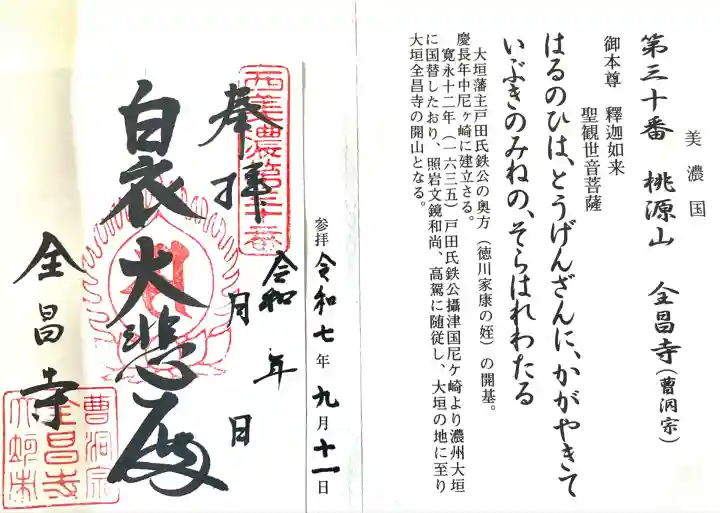 美濃国
第三十番 桃源山 全昌寺(曹洞宗)
御本尊 釋迦如来
聖観世音菩薩
はるのひは、とうげんざんに、かがやきて
いぶきのみねの、そらはれわたる
大垣藩主戸田氏鉄公の奥方(徳川家康の姪)の開基。
慶長年中尼ヶ崎に建立さる。
寛永十二年(一六三五)戸田氏鉄公攝津国尼ヶ崎より濃州大垣
に国替したおり、照岩文鏡和尚、高駕に随従し、大垣の地に至り
大垣全昌寺の開山となる。
参拝 令和七年九月十一日
西美濃第三十番
奉拝
令和 年 月 日
白衣大悲殿
全昌寺
曹洞宗
全昌寺